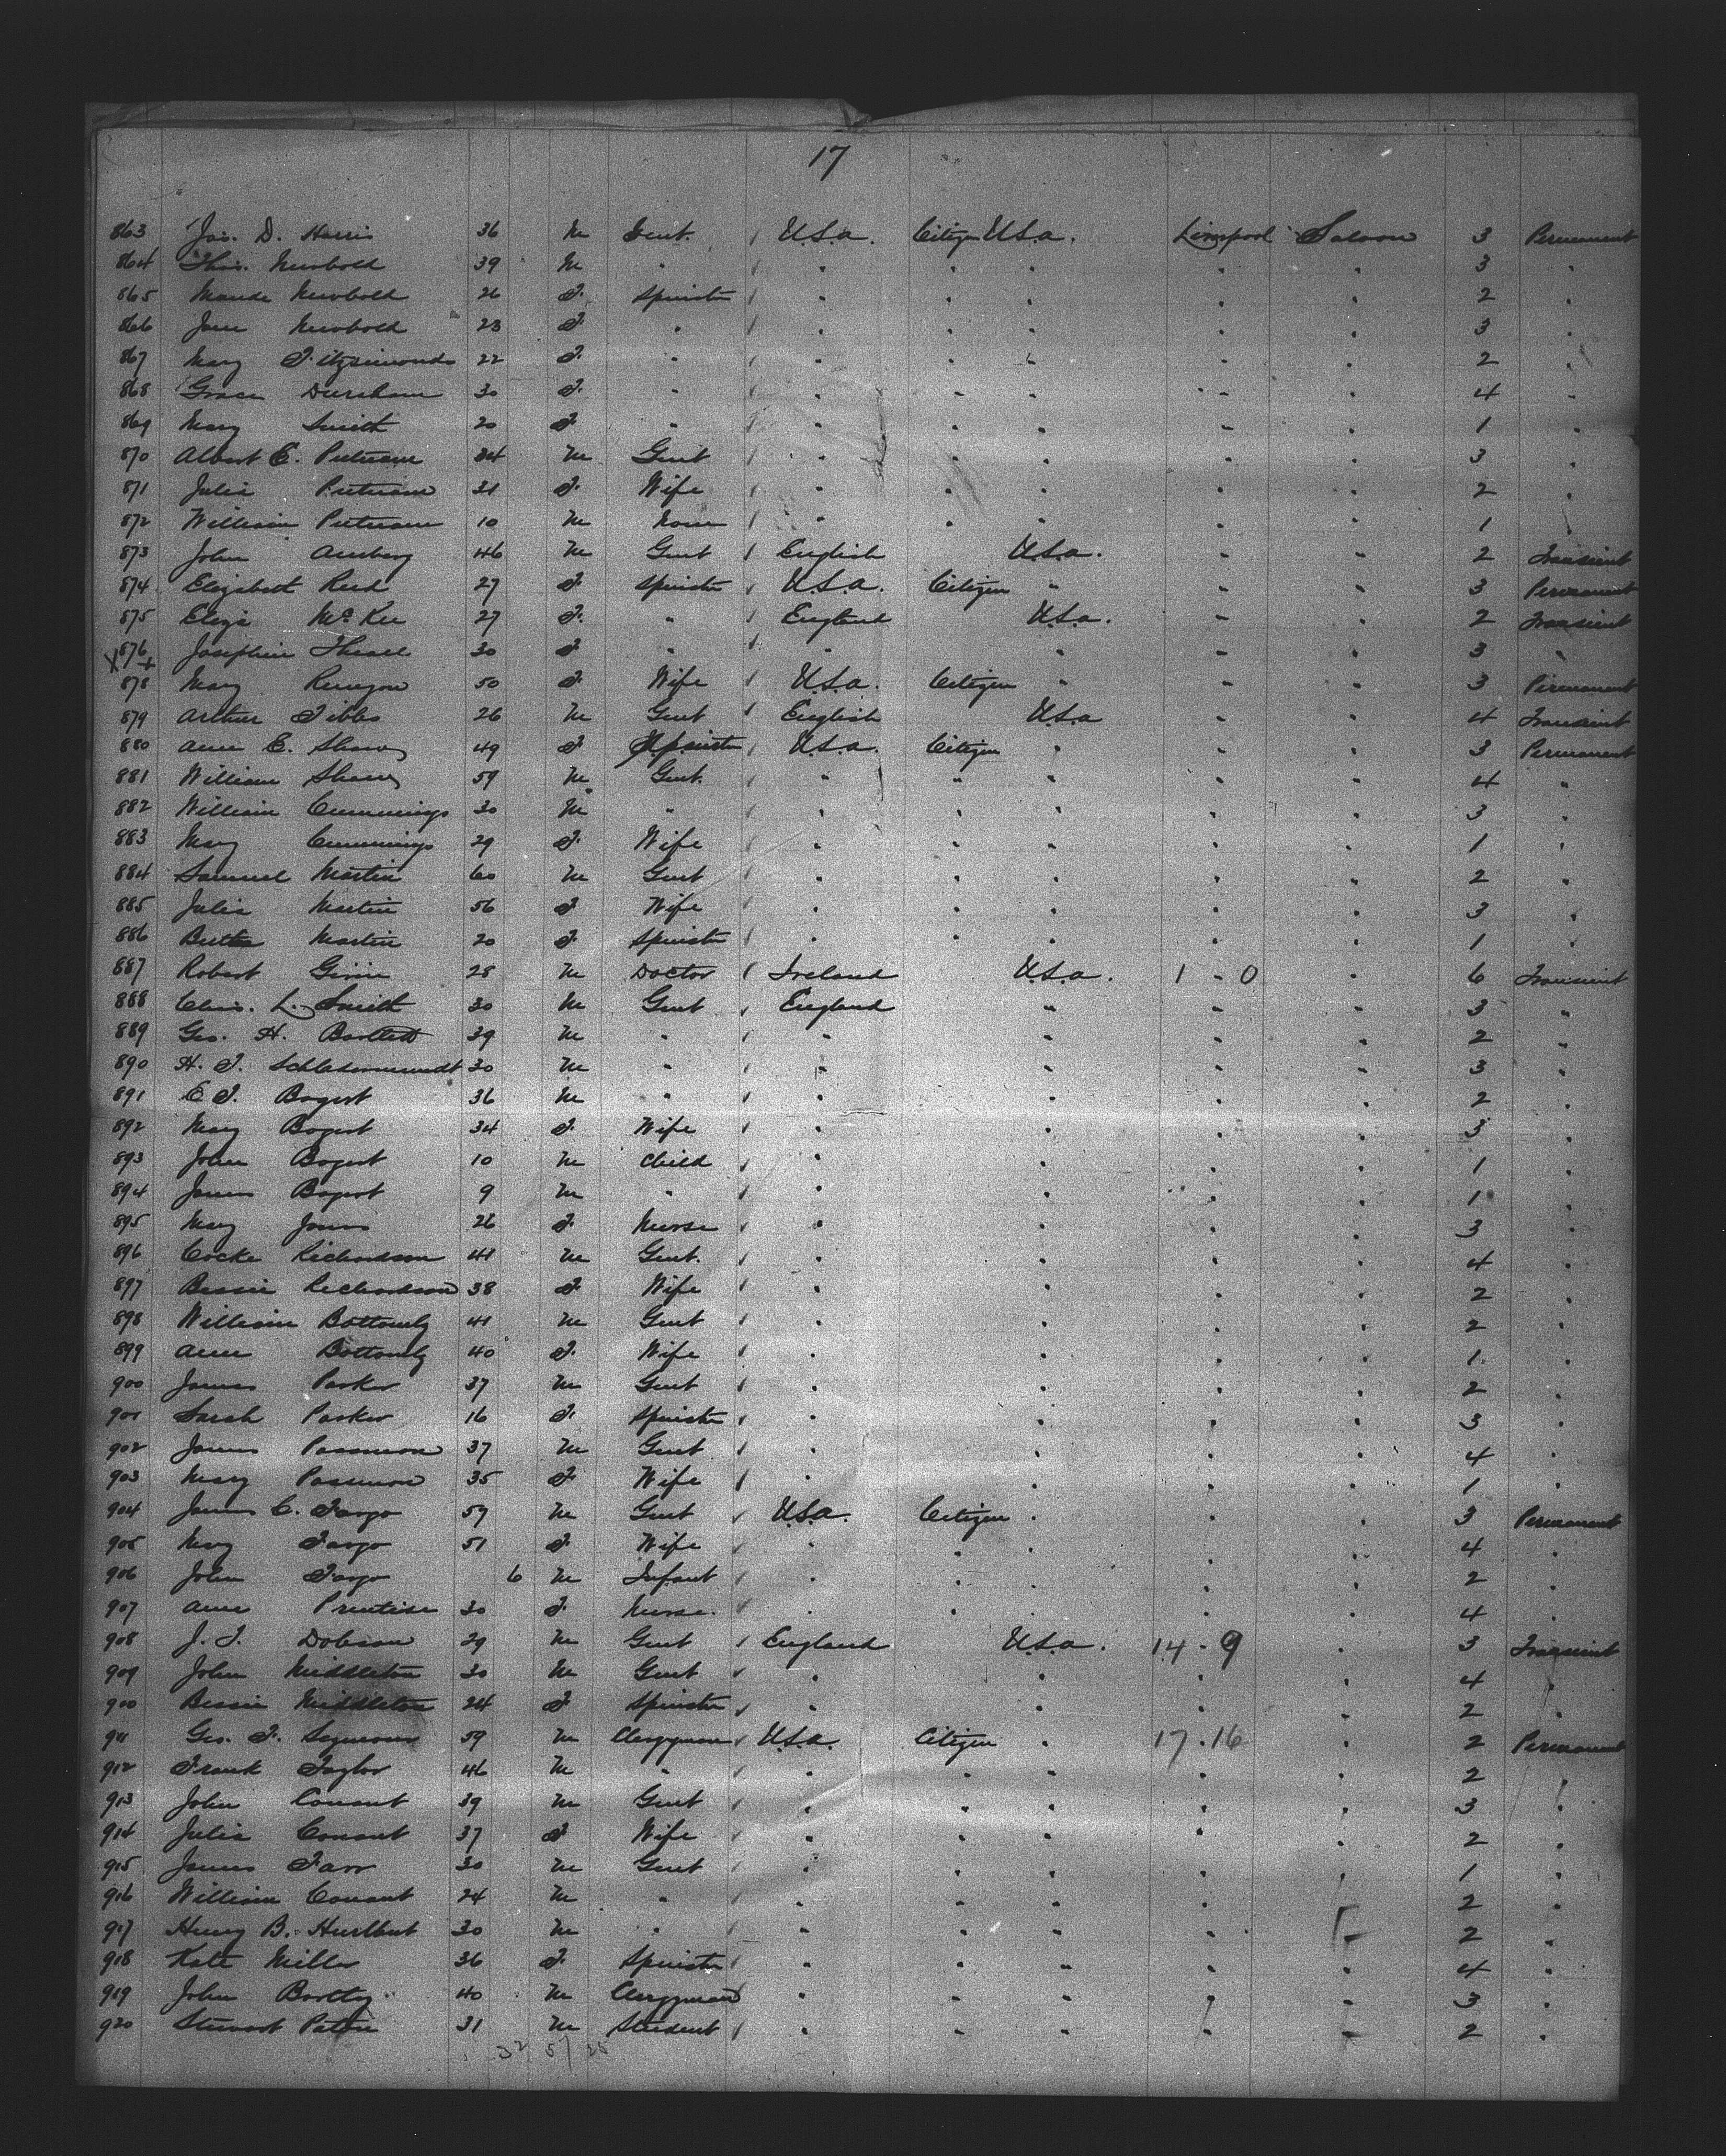 17
863 Jas. D. Harris 36 M Gent. / U.S.A. Citizen U.S.A. Liverpool Saloon 3 Permanent
864 Thos. Newbold 39 M " / " " " " " 3 "
865 Maude Newbold 26 F. Spinster / " " " " " 2 "
866 Jane Newbold 23 F. " / " " " " " 3 "
867 Mary Fitzsimonds 22 F. " / " " " " " 2 "
868 Grace Dursham 30 F. " / " " " " " 4 "
869 Mary Smith 20 F. " / " " " " " 1 "
870 Albert E. Putnam 34 M Gent / " " " " " 3 "
871 Julia Putnam 31 F. Wife / " " " " " 2 "
872 William Putnam 10 M None / " " " " " 1 "
873 John 46 M Gent / English U.S.A. " " 2 Transient
874 Elizabeth Reed 27 F. Spinster / U.S.A. Citizen " " " 3 Permanent
875 Eliza McKee 27 F. " / England U.S.A. " " 2 Transient
876 Josephine 30 F " / " " " " 3 "
878 Mary Runyon 50 F. Wife / U.S.A. Citizen " " " 3 Permanent
879 Arthur Tibbs 26 M Gent / English U.S.A " " 4 Transient
880 Ann E. Shaw 49 F Spinster / U.S.A. Citizen " " " 3 Permanent
881 William Shaw 59 M Gent. / " " " " " 4 "
882 William Cummings 30 M " / " " " " " 3 "
883 Mary Cummings 29 F. Wife / " " " " " 1 "
884 Samuel Martin 60 M Gent / " " " " " 2 "
885 Julia Martin 56 F Wife / " " " " " 3 "
886 Martin 20 F. Spinster / " " " " " 1 "
887 Robert 28 M Doctor / Ireland U.S.A. 1 - 0 " 6 Transient
888 Chas. L. Smith 30 M Gent / England " " " 3 "
889 Geo. H. Bartlett 39 M " / " " " " 2 "
890 H. F. 30 M " / " " " " 3 "
891 E F. Bogert 36 M " / " " " " 2 "
892 Mary Bogert 34 F. Wife / " " " " 3 "
893 John Bogert 10 M Child / " " " " 1 "
894 James Bogert 9 M " / " " " " 1 "
895 Mary Jones 26 F. Nurse / " " " " 3 "
896 Cocke Richardson 41 M Gent. / " " " " 4 "
897 Bessie Richardson 38 F Wife / " " " " 2 "
898 William Bottomly 41 M Gent / " " " " 2 "
899 Ann Bottomly 40 F. Wife / " " " " 1 "
900 James Parker 37 M Gent / " " " " 2 "
901 Sarah Parker 16 F. Spinster / " " " " 3 "
902 James Passmore 37 M Gent / " " " " 4 "
903 Mary Passmore 35 F Wife / " " " " 1 "
904 James C. Fargo 59 M Gent / U.S.A. Citizen " " " 3 Permanent
905 Mary Fargo 51 F Wife / " " " " " 4 "
906 John Fargo 6 M Infant / " " " " " 2 "
907 Ann Prentise 30 F. Nurse. / " " " " " 4 "
908 J. F. Dobson 29 M Gent / England U.S.A. 14 - 9 " 3 Transient
909 John Middleton 30 M Gent / " " " " 4 "
900 Bessie Middleton 24 F Spinster / " " " " 2 "
911 Geo. F. Seymour 59 M Clergyman / U.S.A. Citizen " 17 - 16 " 2 Permanent
912 Frank Taylor 46 M " / " " " " " 2 "
913 John Conant 39 M Gent / " " " " " 3 "
914 Julia Conant 37 F Wife / " " " " " 2 "
915 James Farr 30 M Gent / " " " " " 1 "
916 William Conant 24 M " / " " " " " 2 "
917 Henry B. Hurlbut 30 M " / " " " " " 2 "
918 Kate Miller 36 F. Spinster / " " " " " 4 "
919 John 40 M Clergyman / " " " " " 3 "
920 Stewart Paton 31 M Student / " " " " " 2 "
32 51 25